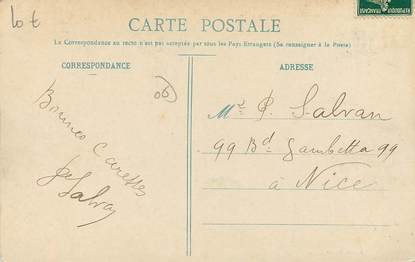 Lot
REPUBLIQUE FRANÇAISE
CARTE POSTALE
La Correspondance au recto n'est pas acceptée par tous les Pays Etrangers (Se renseigner à la Poste)
CORRESPONDANCE
ADRESSE
06
Bonnes Caresses
Salvan
Mr P. Salvan
99 Bd Gambetta 99
à Nice